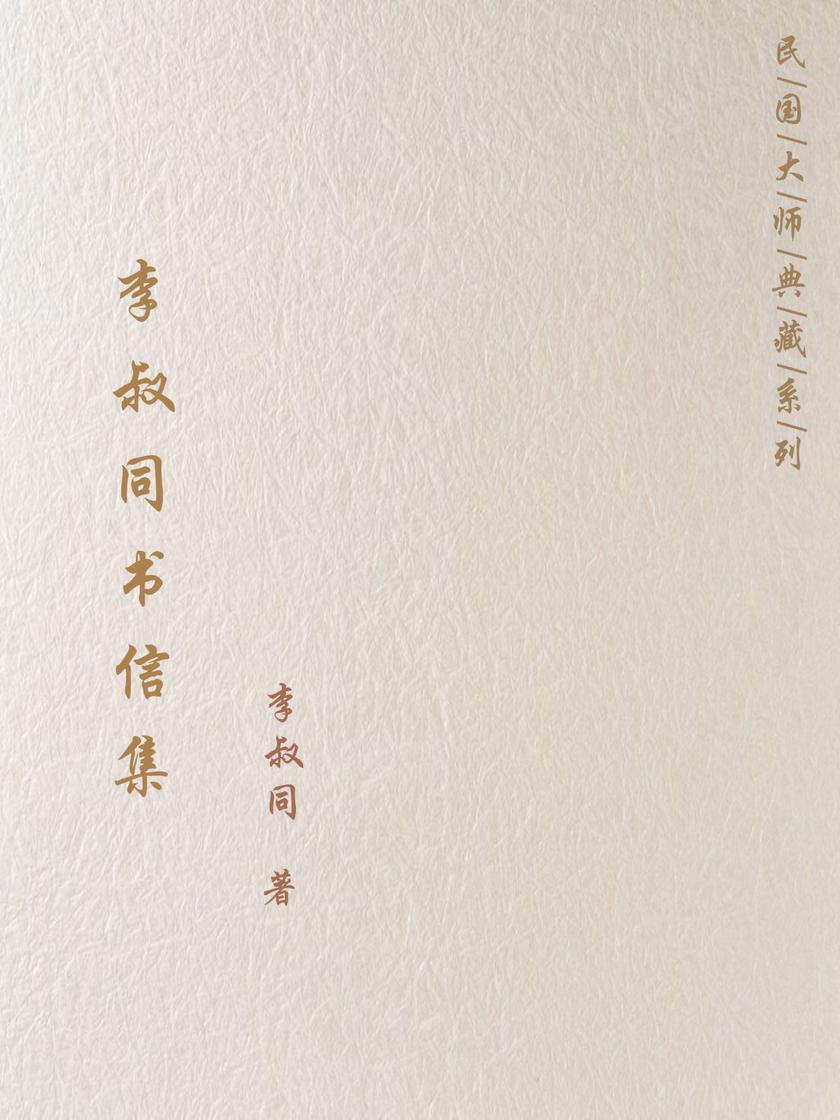 民/国/大/师/典/藏/系/列
李叔同书信集
李叔同 著